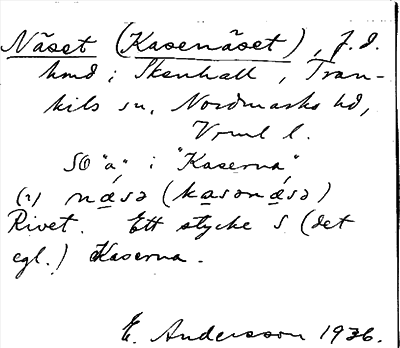 Näset (Kasenäset), f. d.
hmd i Skenhall, Tran-
kils sn, Nordmarks hd,
Vrml l.
SO "a" i "Kaserna",
(1) näsə (kasonäsə)
Rivet. Ett stycke S (det
egl.) Kaserna.
E. Andersson 1936.